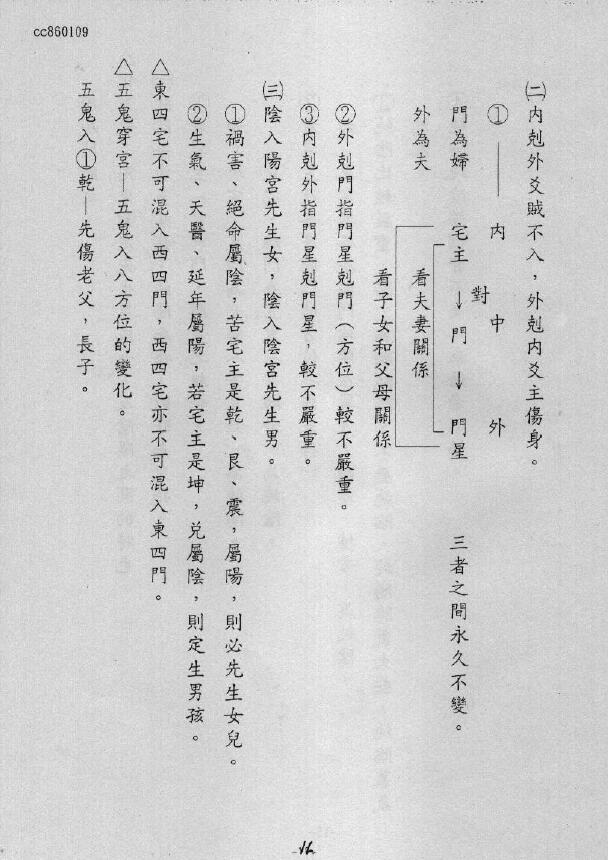 cc860109
㈡內剋外爻賊不入，外剋內爻主傷身。
①——內　中　外
對
門為婦　宅主→門→門星　三者之間永久不變。
外為夫　看夫妻關係
看子女和父母關係
②外剋門指門星剋門（方位）較不嚴重。
③內剋外指門星剋門星，較不嚴重。
㈢陰入陽宮先生女，陰入陰宮先生男。
①禍害、絕命屬陰，苦宅主是乾、艮、震，屬陽，則必先生女兒。
②生氣、天醫、延年屬陽，若宅主是坤，兌屬陰，則定生男孩。
△東四宅不可混入西四門，西四宅亦不可混入東四門。
△五鬼穿宮—五鬼入八方位的變化。
五鬼入①乾—先傷老父，長子。